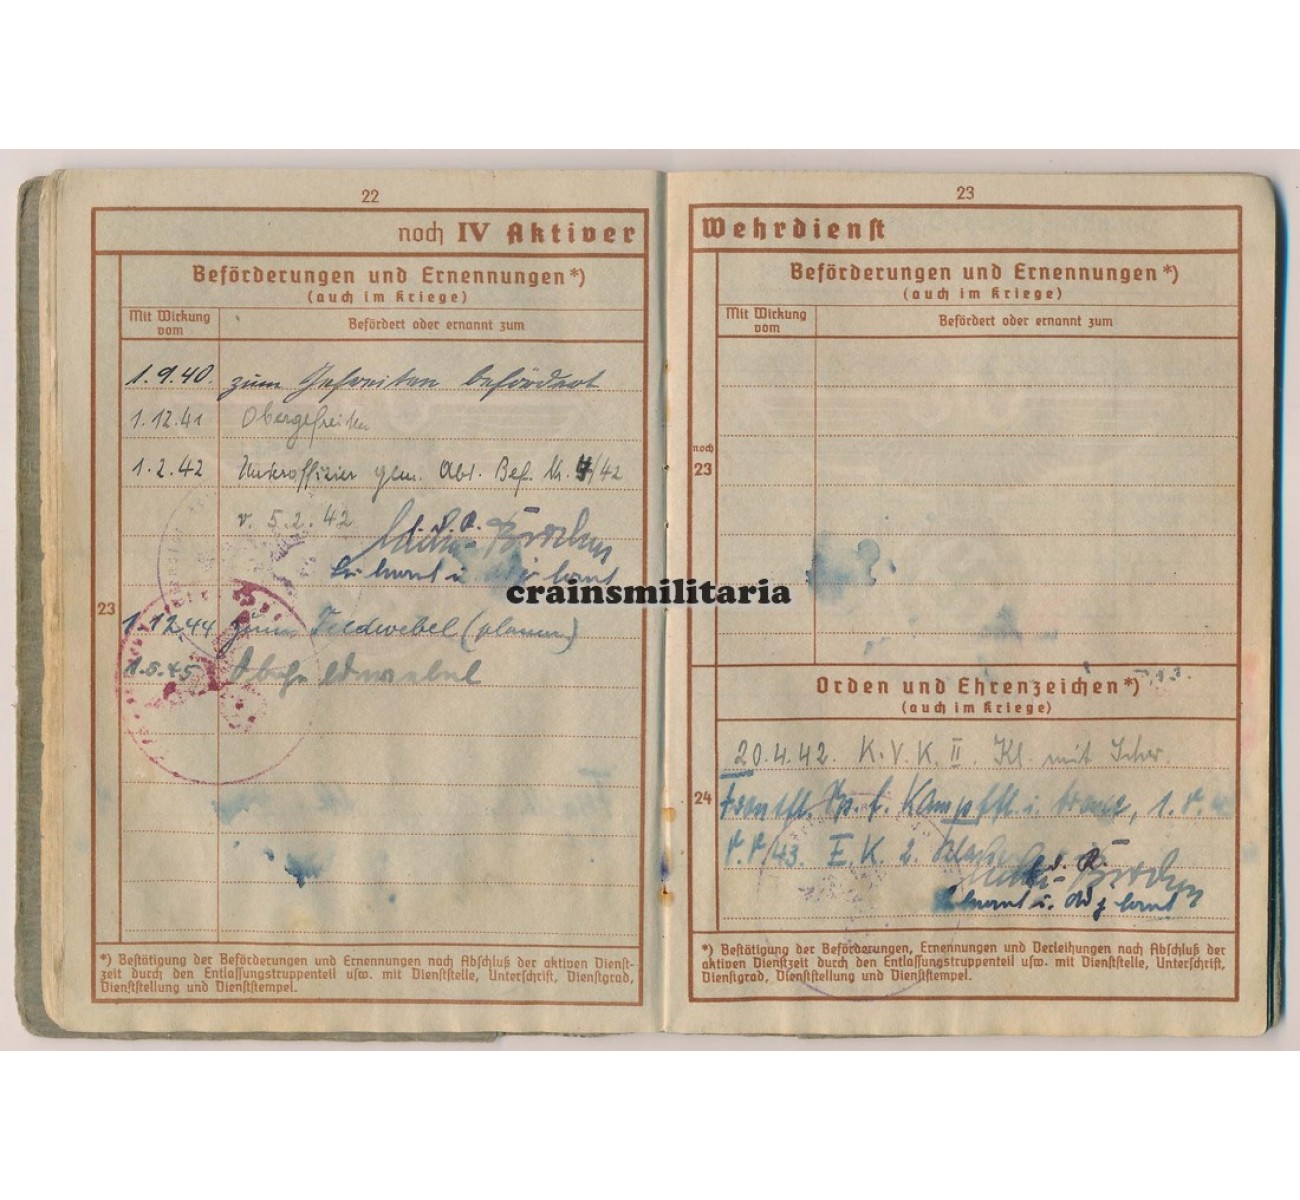 22
noch IV Aktiver
Beförderungen und Ernennungen*)
(auch im Kriege)
Mit Wirkung
vom
Befördert oder ernannt zum
1.9.40. zum Gefreiten befördert
1.12.41 Obergefreiten
1.2.42 Unteroffizier gem. Abt. Bef. Nr. /42
v. 5.2.42
Leutnant u.
23
1.12.44 zum Feldwebel (planm)
1.5.45 Oberfeldwebel
*) Bestätigung der Beförderungen und Ernennungen nach Abschluß der aktiven Dienst-
zeit durch den Entlassungstruppenteil usw. mit Dienststelle, Unterschrift, Dienstgrad,
Dienststellung und Dienststempel.
23
Wehrdienst
Beförderungen und Ernennungen*)
(auch im Kriege)
Mit Wirkung
vom
Befördert oder ernannt zum
noch
23
crainsmilitaria
Orden und Ehrenzeichen*)
(auch im Kriege)
20.4.42. K.V.K. II. Kl. mit Schw.
24
Frontfl. Sp. f. Kampffl. i. Bronze, 1.
43. E.K. 2. Klasse
Leutnant u.
*) Bestätigung der Beförderungen, Ernennungen und Verleihungen nach Abschluß der
aktiven Dienstzeit durch den Entlassungstruppenteil usw. mit Dienststelle, Unterschrift,
Dienstgrad, Dienststellung und Dienststempel.